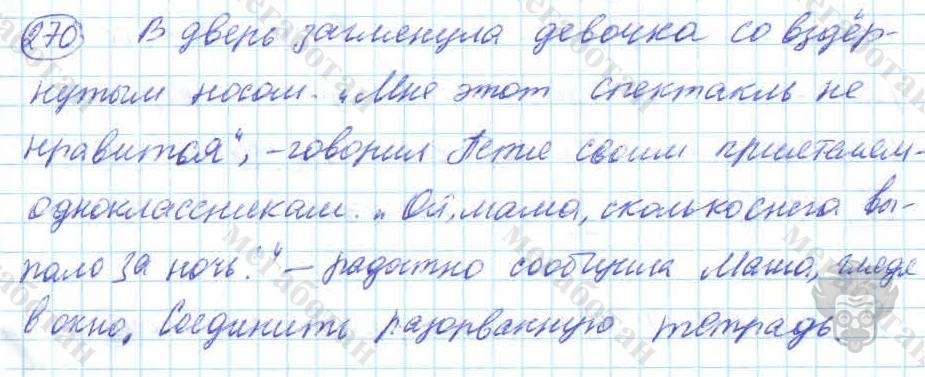 270 В дверь заглянула девочка со вздёр-
нутым носом. „Мне этот спектакль не
нравится“, – говорил Петя своим приятелем-
одноклассникам. „Ой, мама, сколько снега вы-
пало за ночь!“ – радостно сообщила Маша, глядя
в окно. Соединить разорванную тетрадь.
мегаботан